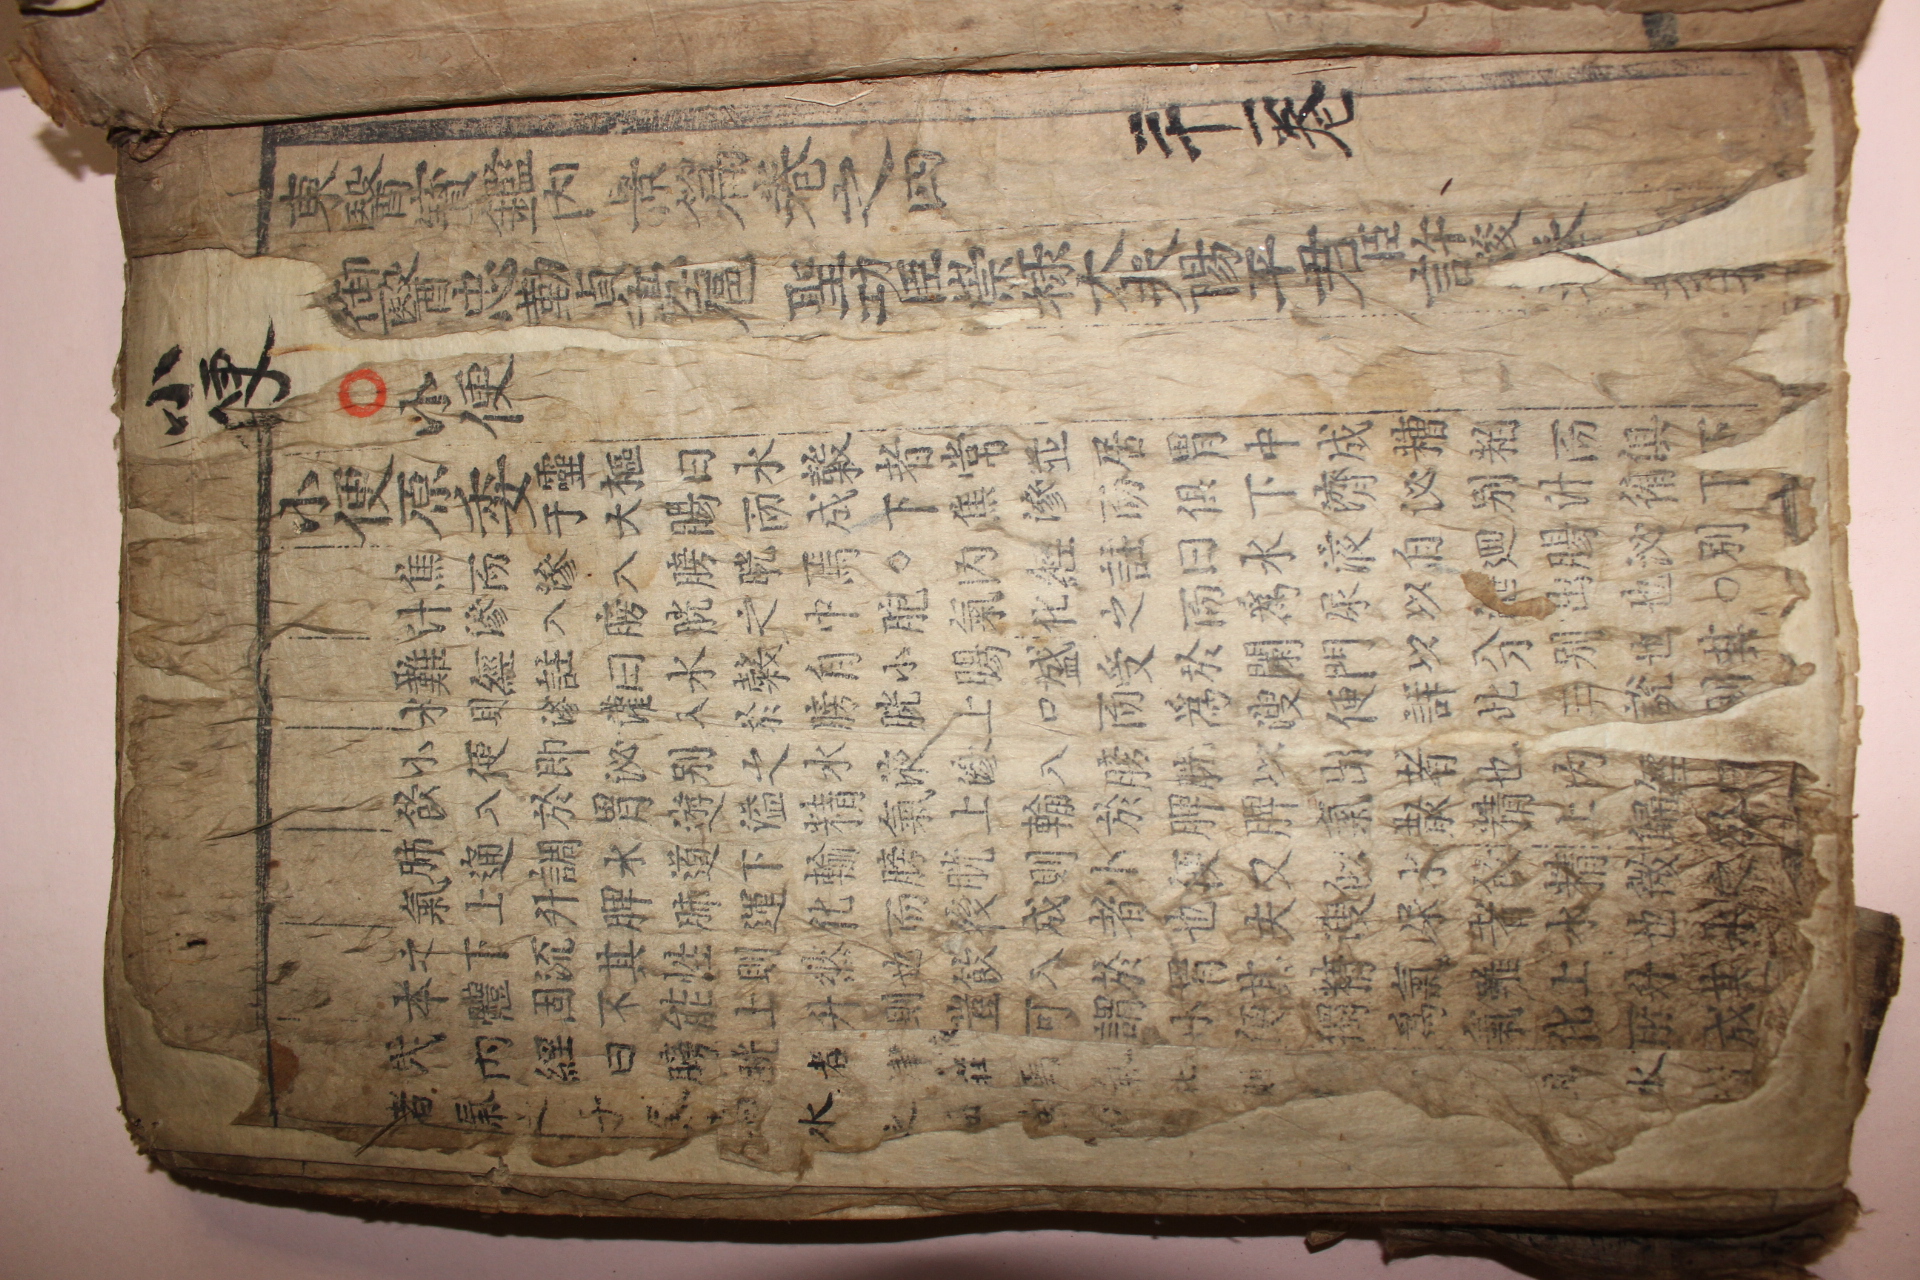 東醫寶鑑內景篇卷之四
二十一卷
御醫忠勤貞亮扈 聖功臣崇祿大夫陽平君臣許浚奉
小便
小便
小便原委
靈樞曰水穀者常並居胃中成糟粕而俱下
于大腸而成下焦滲而俱下濟泌别汁循下
焦而滲入膀胱焉○內經註曰水液自迴腸泌別
汁滲入膀胱之中胞氣化之而爲尿以泄出也○
難經註曰水穀自小腸盛受於闌門以分别也其
水則滲灌入於膀胱上口而爲溲便詳此三說則
小便即泌别之水液滲入膀胱以出者也內經曰
飲入於胃遊溢精氣上輸於脾脾氣散精上歸於
肺通調水道下輸膀胱則小便又似水飲精微之
氣上升脾肺運化而後成者也夫溲尿者水也水
之下流其性則然也飲入於胃其精氣雖上升其
本體固不能上升則豈可謂小便獨爲氣化所成
哉內經曰膀胱者津液藏焉氣化則 水
者氣之子氣 水之